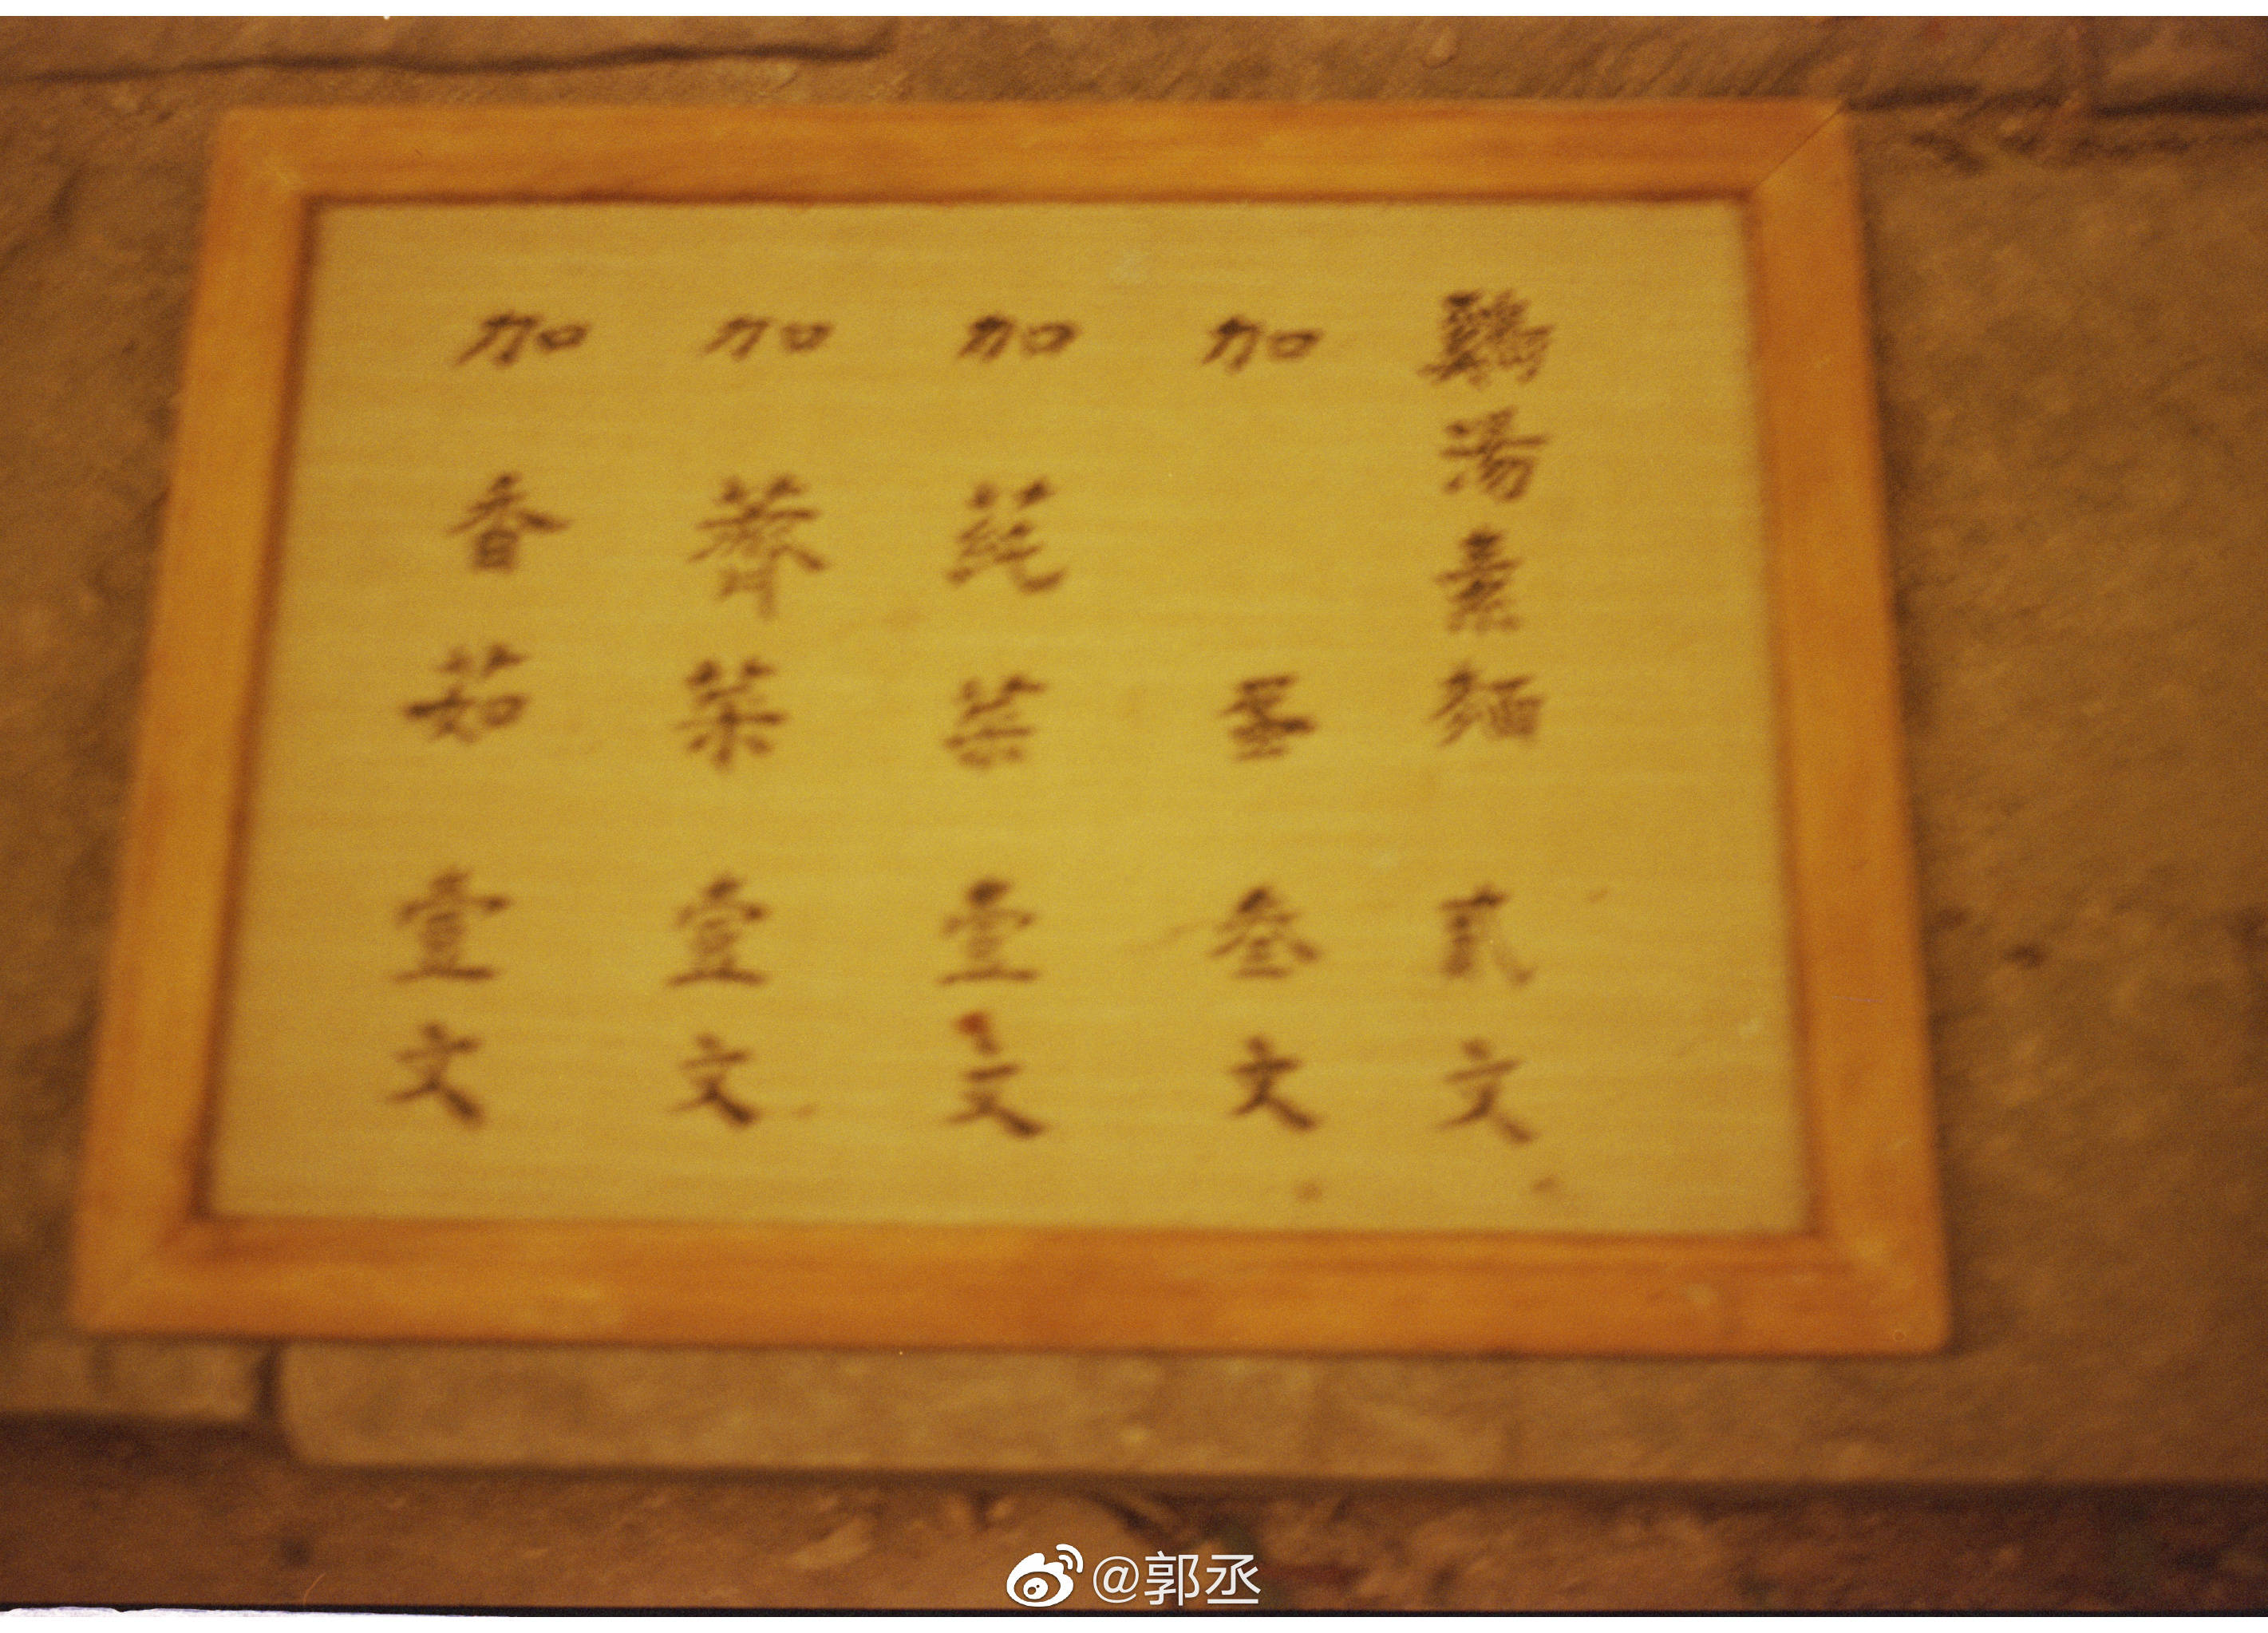 鷄湯素麵 貳文
加 蛋 叁文
加 菜 壹文
加薺菜 壹文
加香茹 壹文
@郭丞